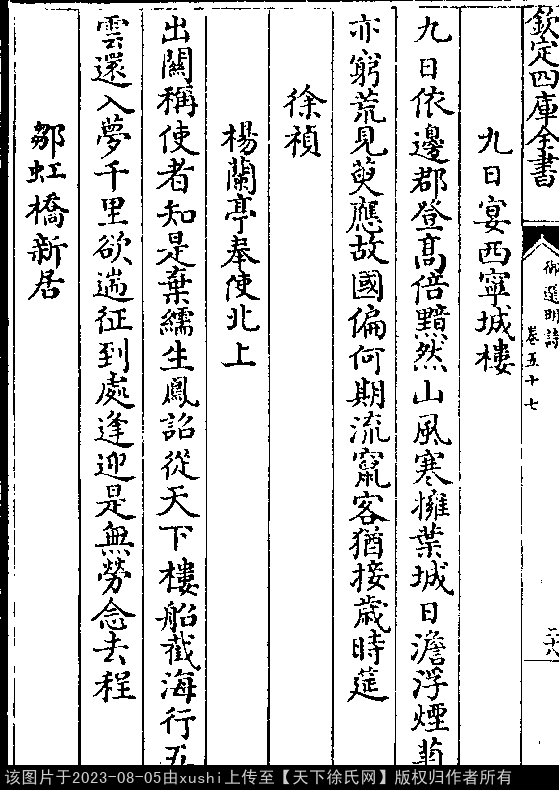 欽定四庫全書
御選明詩
卷五十七
九日宴西寧城樓
九日依邊郡登高倍黯然山風寒擁葉城日澹浮煙菊
亦窮荒見萸應故國偏何期流竄客猶接歲時筵
徐禎
楊蘭亭奉使北上
出關稱使者知是棄繻生鳳詔從天下樓船截海行五
雲還入夢千里欲遄征到處逢迎是無勞念去程
鄒虹橋新居
该图片于2023-08-05由xushi上传至【天下徐氏网】版权归作者所有